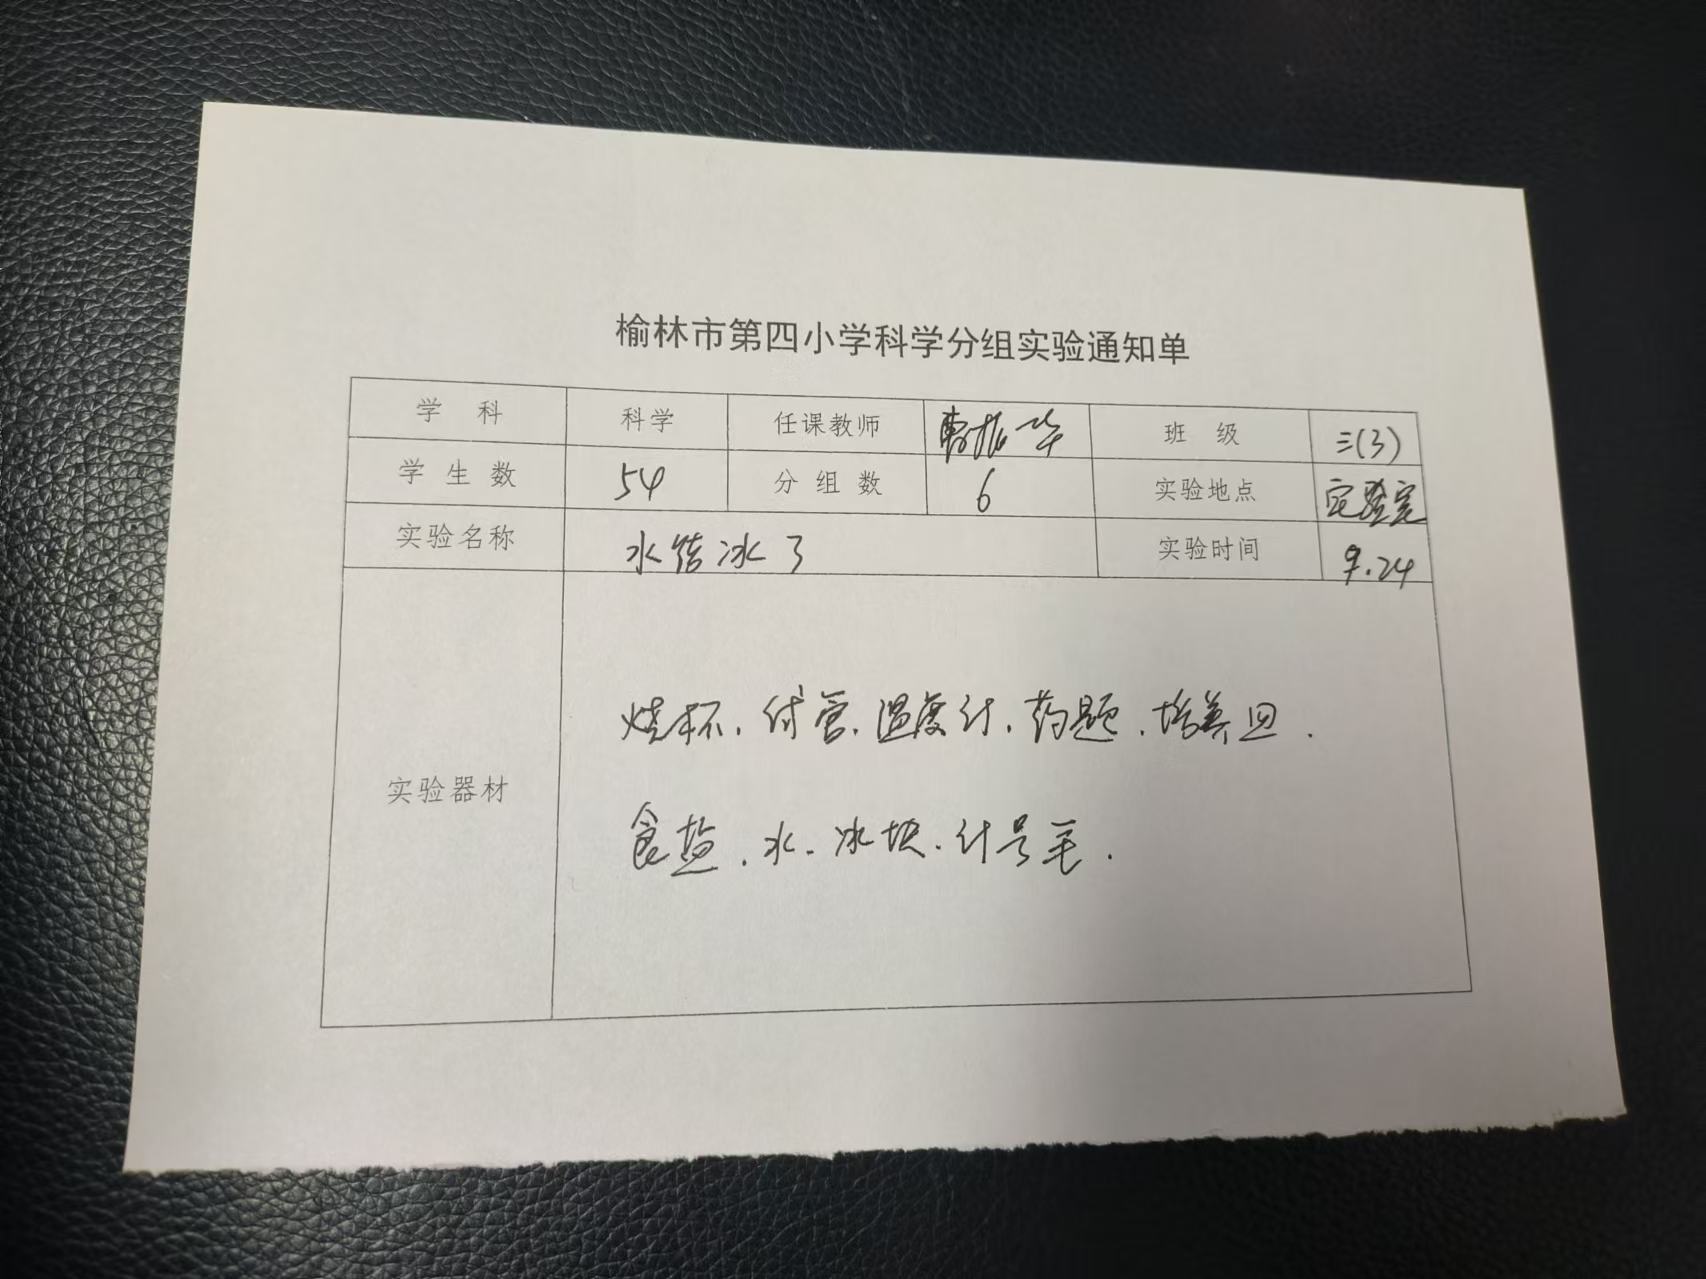 榆林市第四小学科学分组实验通知单
学 科 科学 任课教师 曹振华 班 级 三(3)
学 生 数 54 分 组 数 6 实验地点 实验室
实验名称 水结冰了 实验时间 9.24
实验器材
烧杯、试管、温度计、药匙、培养皿、
食盐、水、冰块、记号笔.